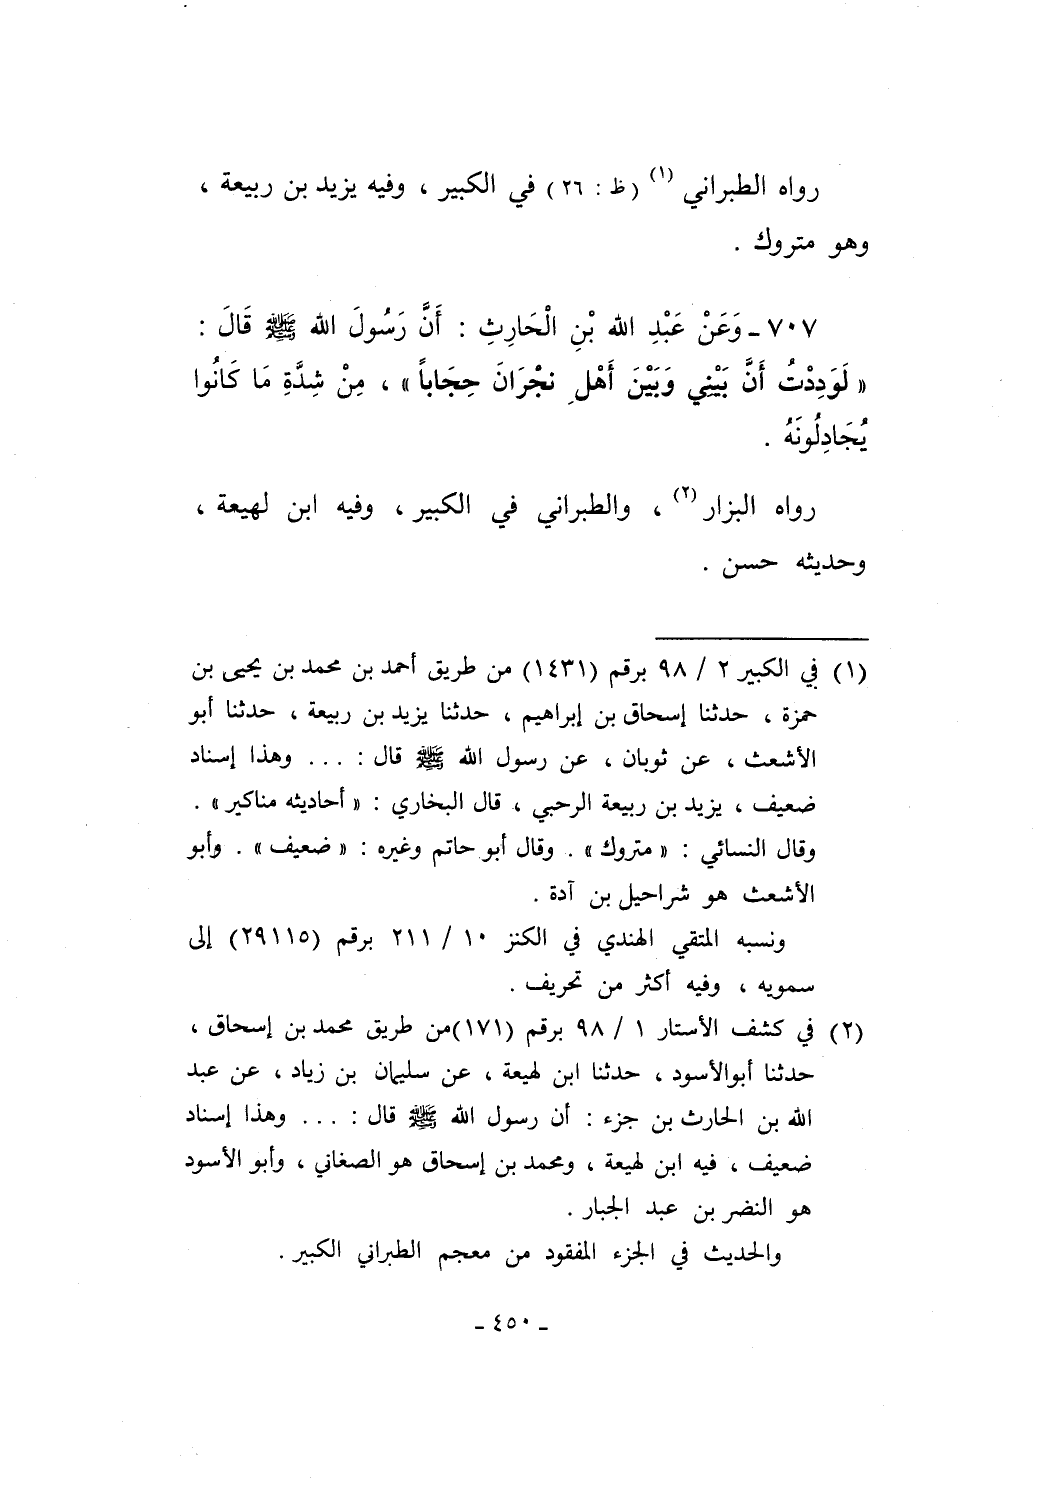 رواه الطبراني (١) (ظ : ٢٦) في الكبير ، وفيه يزيد بن ربيعة ،
وهو متروك .
٧٠٧ ـ وَعَنْ عَبْدِ الله بْنِ الْحَارِثِ : أَنَّ رَسُولَ الله ﷺ قَالَ :
« لَوَدِدْتُ أَنَّ بَيْنِي وَبَيْنَ أَهْلِ نَجْرَانَ حِجَاباً » ، مِنْ شِدَّةِ مَا كَانُوا
يُجَادِلُونَهُ .
رواه البزار (٢) ، والطبراني في الكبير ، وفيه ابن لهيعة ،
وحديثه حسن .
(١) في الكبير ٢ / ٩٨ برقم (١٤٣١) من طريق أحمد بن محمد بن يحيى بن
حمزة ، حدثنا إسحاق بن إبراهيم ، حدثنا يزيد بن ربيعة ، حدثنا أبو
الأشعث ، عن ثوبان ، عن رسول الله ﷺ قال : ... وهذا إسناد
ضعيف ، يزيد بن ربيعة الرحبي ، قال البخاري : « أحاديثه مناكير » .
وقال النسائي : « متروك » . وقال أبو حاتم وغيره : « ضعيف » . وأبو
الأشعث هو شراحيل بن آدة .
ونسبه المتقي الهندي في الكنز ١٠ / ٢١١ برقم (٢٩١١٥) إلى
سمويه ، وفيه أكثر من تحريف .
(٢) في كشف الأستار ١ / ٩٨ برقم (١٧١)من طريق محمد بن إسحاق ،
حدثنا أبوالأسود ، حدثنا ابن لهيعة ، عن سليمان بن زياد ، عن عبد
الله بن الحارث بن جزء : أن رسول الله ﷺ قال : ... وهذا إسناد
ضعيف ، فيه ابن لهيعة ، ومحمد بن إسحاق هو الصغاني ، وأبو الأسود
هو النضر بن عبد الجبار .
والحديث في الجزء المفقود من معجم الطبراني الكبير .
ـ ٤٥٠ ـ